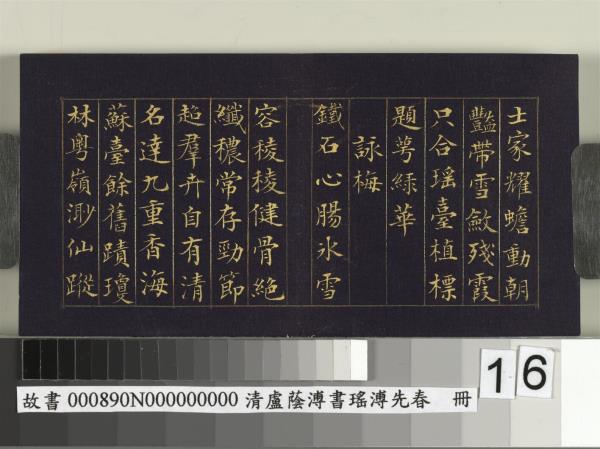 士家耀蟾動朝
豔帶雪斂殘霞
只合瑶臺植標
題萼緑華
詠梅
鐵石心腸氷雪
容稜稜健骨絶
纖穠常存勁節
超羣卉自有清
名達九重香海
蘇臺餘舊蹟瓊
林粤嶺渺仙蹤
16
故書 000890N000000000 清盧蔭溥書瑤溥先春 冊